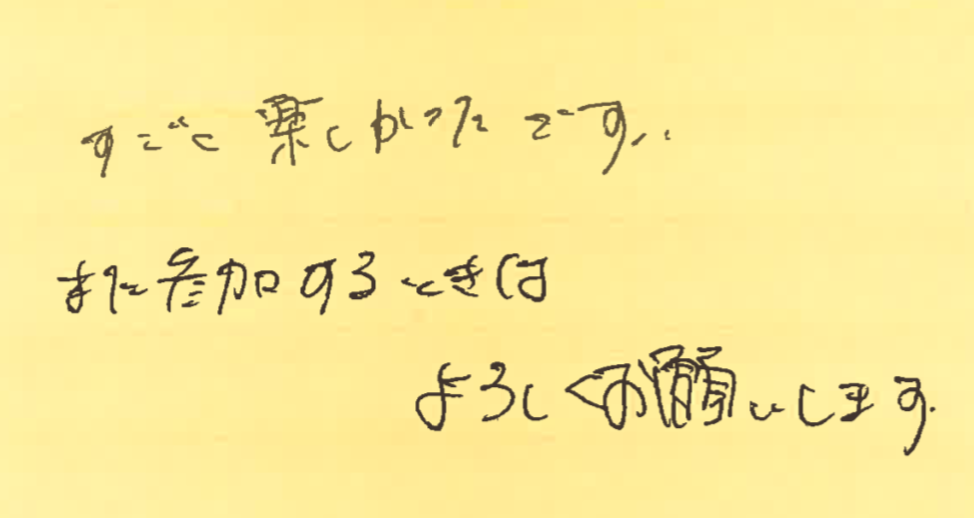 すごく楽しかったです。
また参加するときは
よろしくお願いします。